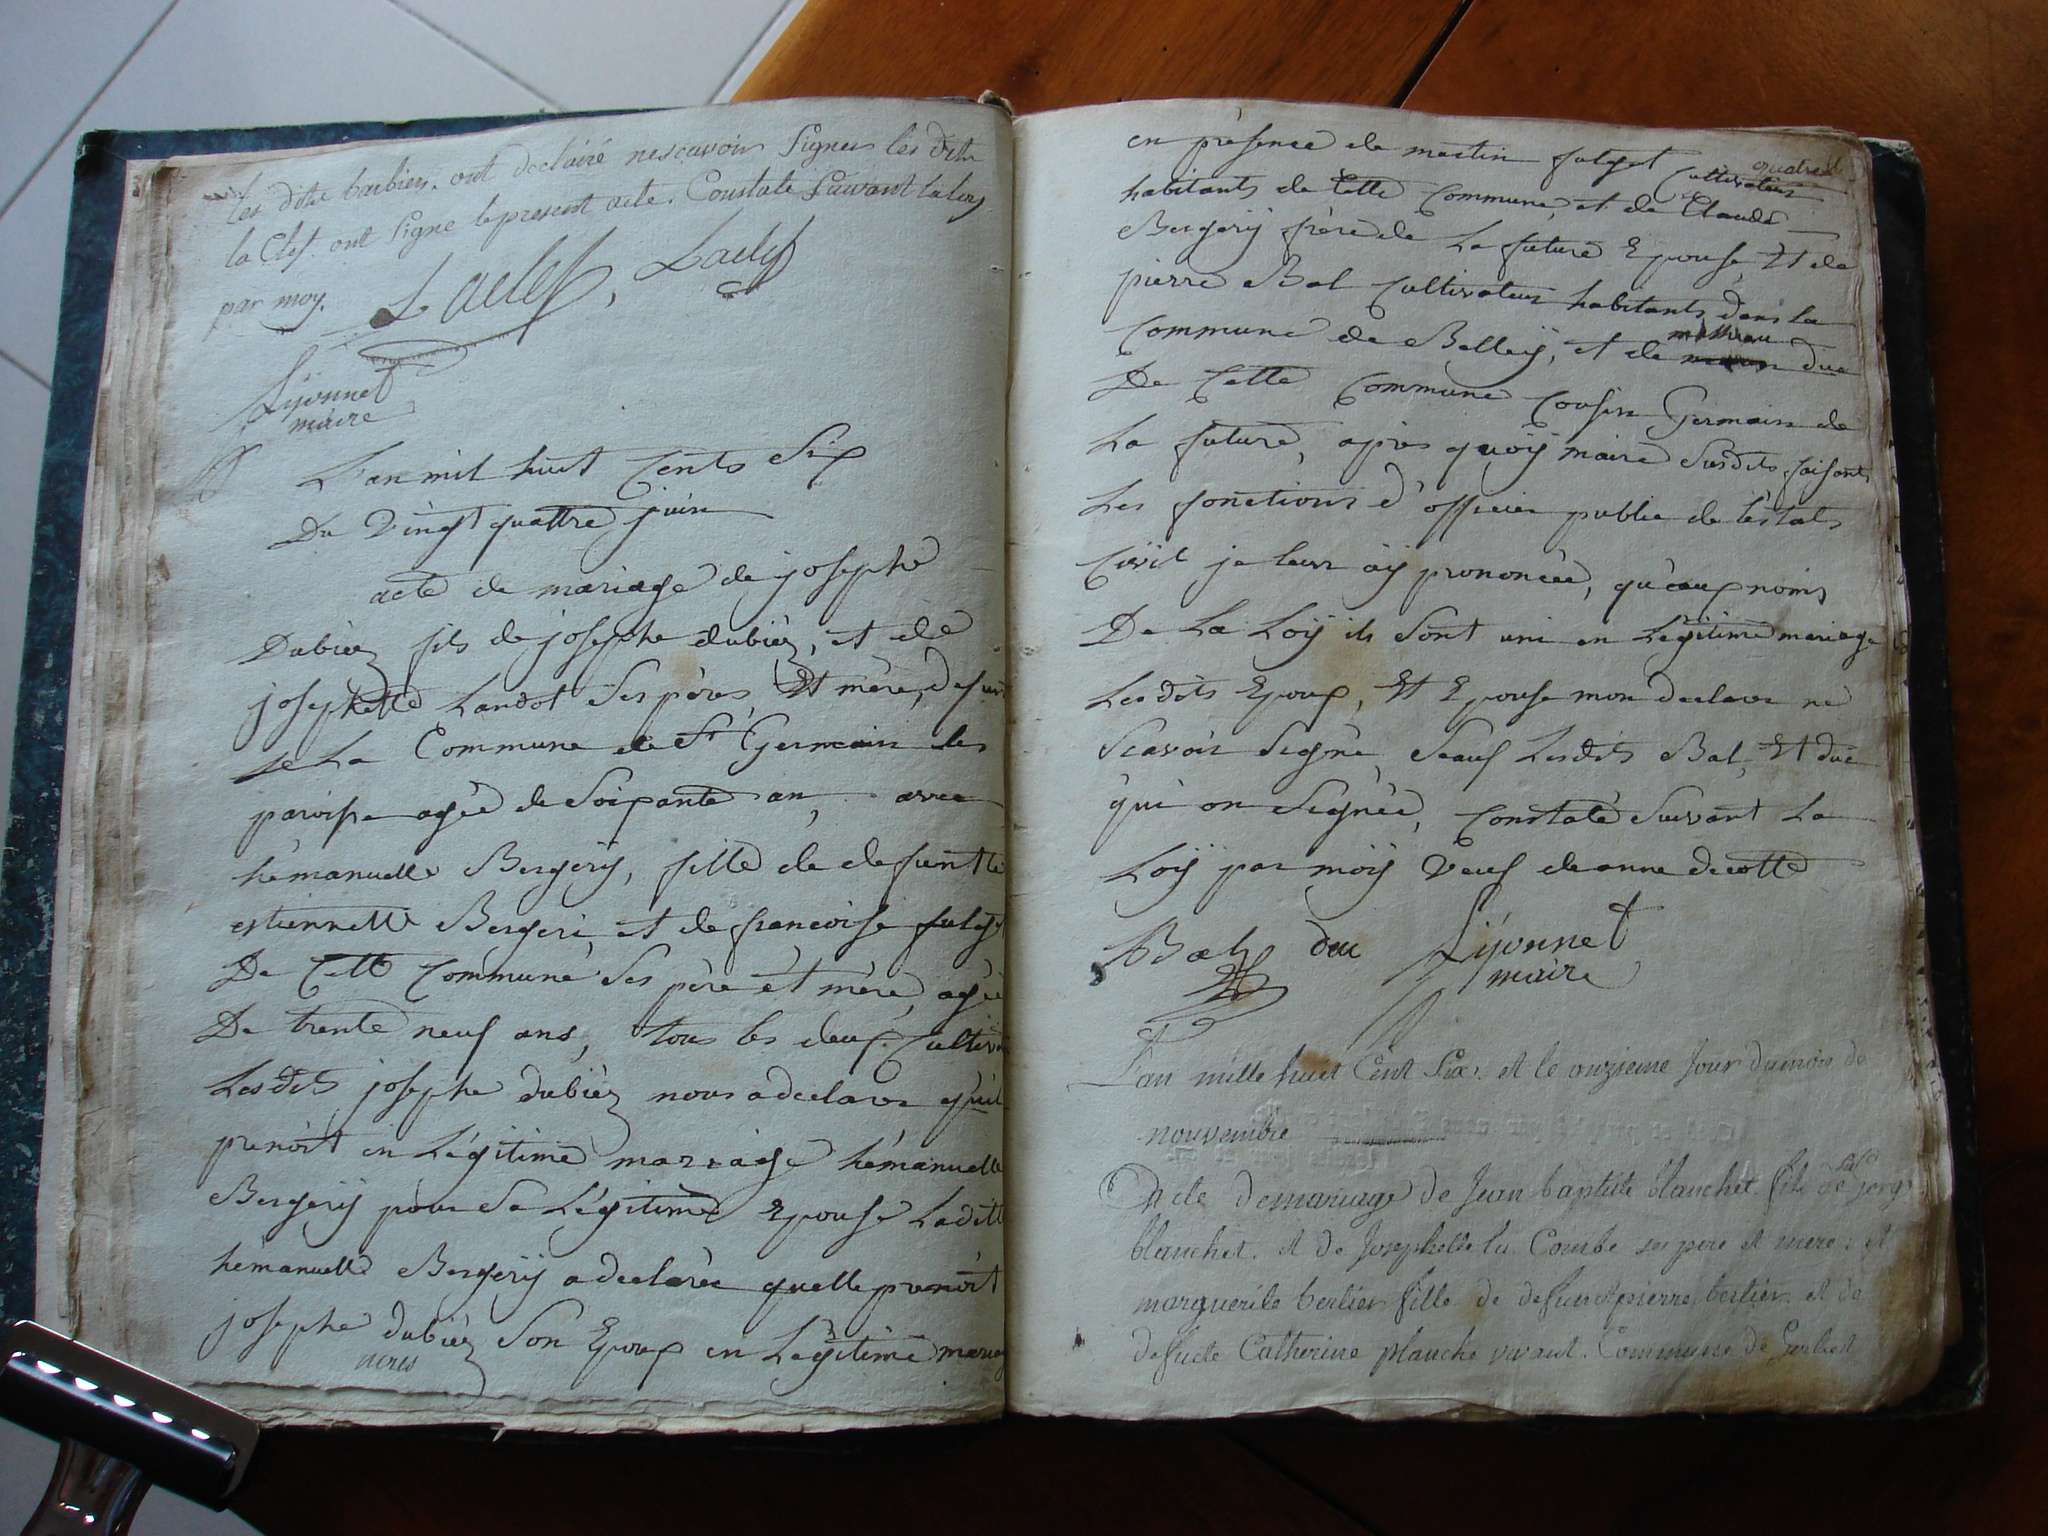 les dits barbier. ont declairé nescavoir Signer les dits
la Clef. ont Signe le present acte. Constate Suivant la loy
par moy.
Laclef, Laclef
Lijonnet
maire
L'an mil huit Cents Six
Du Vingt quattre juin
acte de mariage de josephe
Dubiez fils de josephe dubiez, et de
josephette Landot Ses pères, Et mère, defunt
de La Commune de St Germain les
paroisse agée de Soixante an, avec
hémanuelle Bergerÿ, fille de defunt
estiennette Bergeri, et de francoise
De Cette Commune Ses père et mère, agée
De trente neuf ans, tous les deux Cultiv
Lesdits josephe dubiez nous a declare qu'il
prenoit en Légitime mariage hémanuelle
Bergerÿ pour Sa Légitime Epouse Ladite
hémanuelle Bergerÿ a declarée quelle prenoit
josephe dubiez Son Epoux en Légitime mariag
en présence de martin Cultivateur
habitants de Cette Commune, et de Claude
Bergerÿ frère de La future Epouse, Et de
pierre Bal Cultivateur habitants dans la
Commune de Belleÿ, et de duc
De Cette Commune Cousin Germain de
La future, apres quoÿ maire Susdits faisant
Les fonctions d'officier public de l'estats
Civil je leur aÿ prononcée, qu'aux noms
De La Loÿ ils Sont uni en Légitime mariage
Lesdits Epoux, Et Epouse mon declare ne
Scavoir Segné, Seauf Lesdits Bal, Et duc
qui on Segnée, Constaté Suivant La
Loÿ par moÿ Veuf de anne decotte
Bal duc Lijonnet
maire
L'an mille huit Cent Six. et le onzieme Jour du mois de
nouvembre
Acte de mariage de Jean baptiste blanchet. fils de
blanchet. et de Josephette la Combe ses pere et mere. et
marguerite berlier fille de defunt pierre berlier. et de
defucte Catherine planche vivant. Commune de